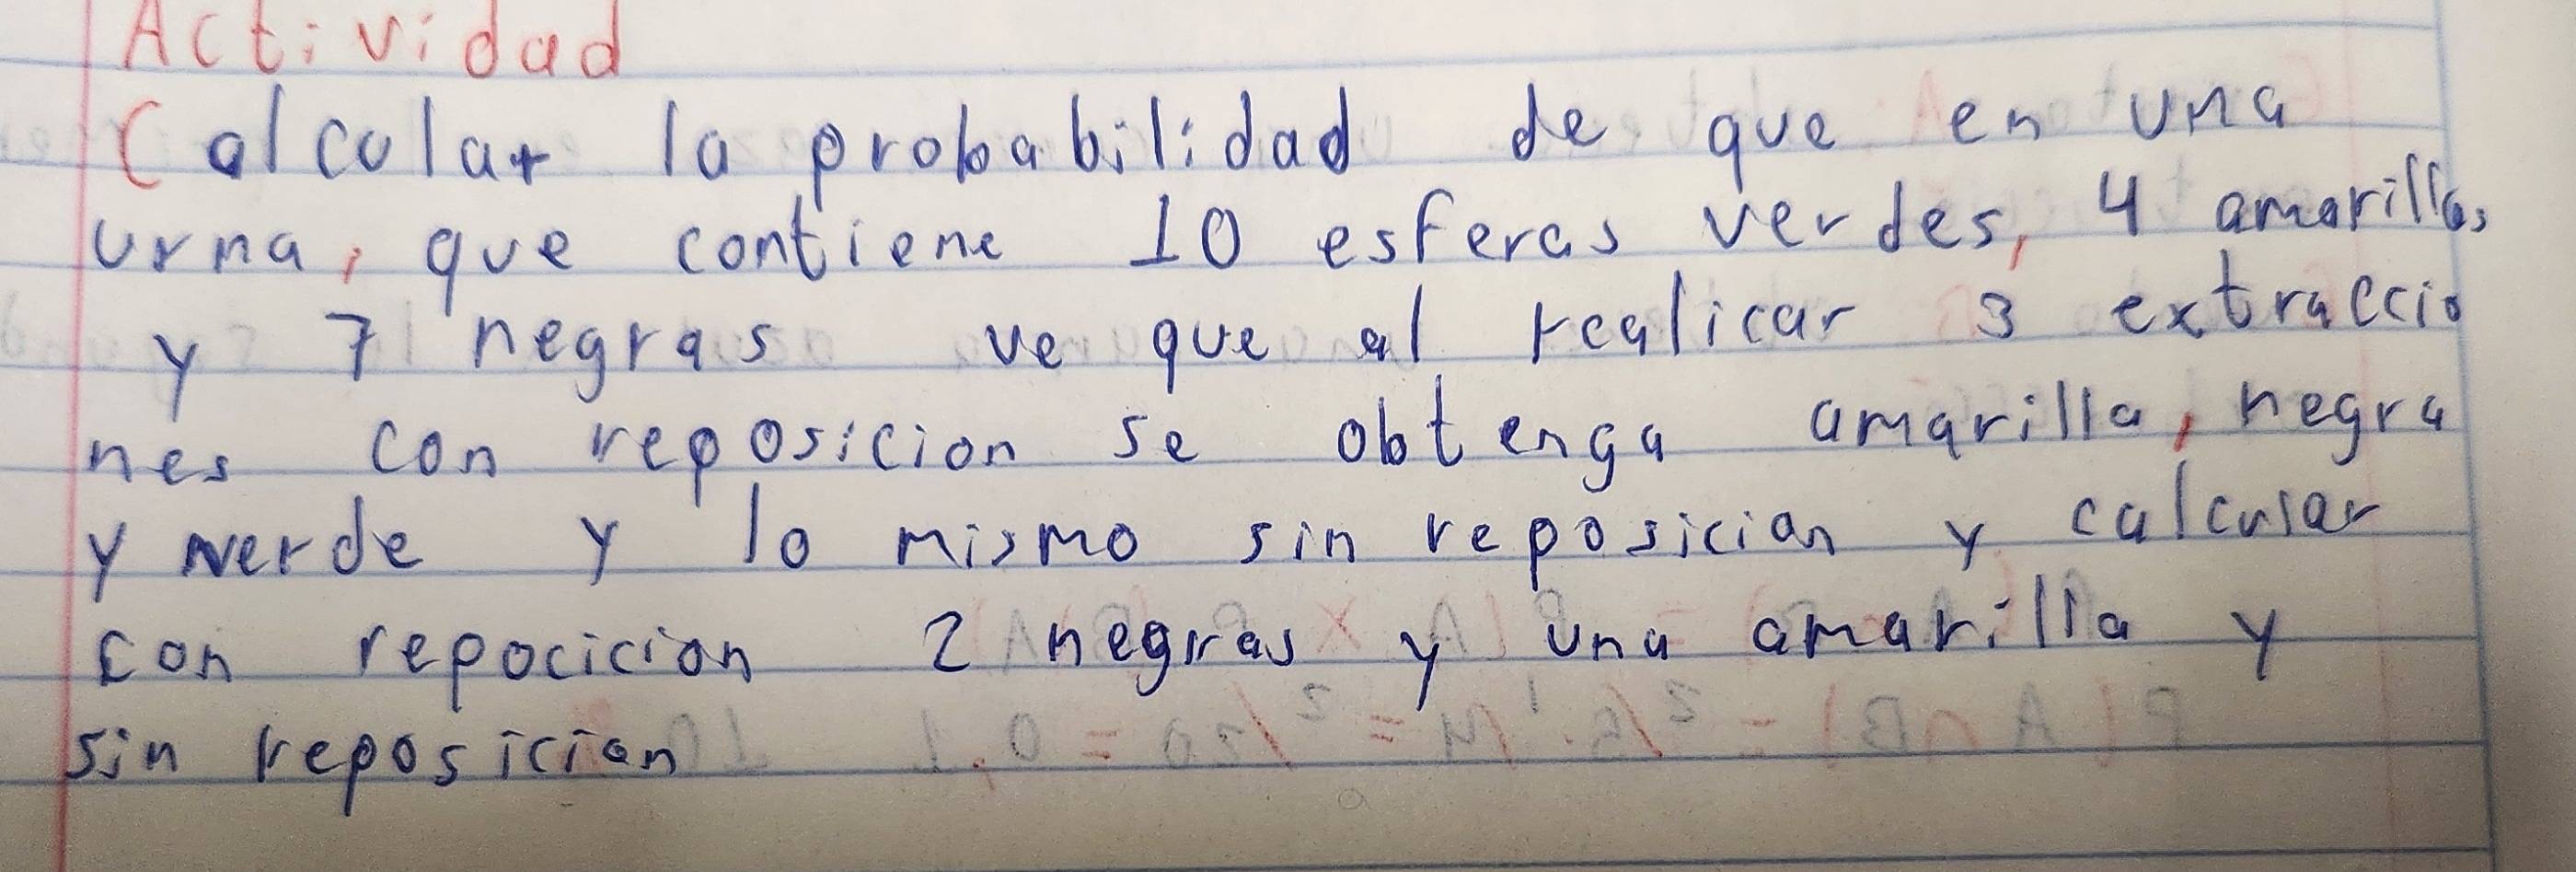 Actividad
Calcular la probabilidad de que en una
urna, que contiene 10 esferas verdes, 4 amarillas
y 7 negras ve que al realicar 3 extraccio
nes con reposicion se obtenga amarilla, negra
y verde y lo mismo sin reposician y calcular
con repocicion 2 negras y una amarilla y
sin reposician